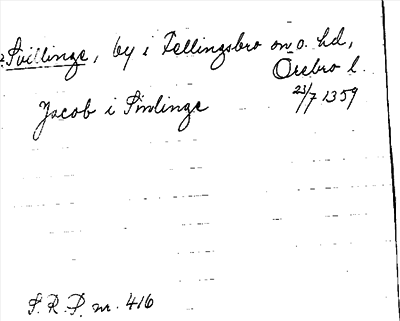 Svillinge, by i Fellingsbro sn o. hd,
Örebro l.
Jacob i Sinlinge 23/7 1359
S. R. P. nr. 416